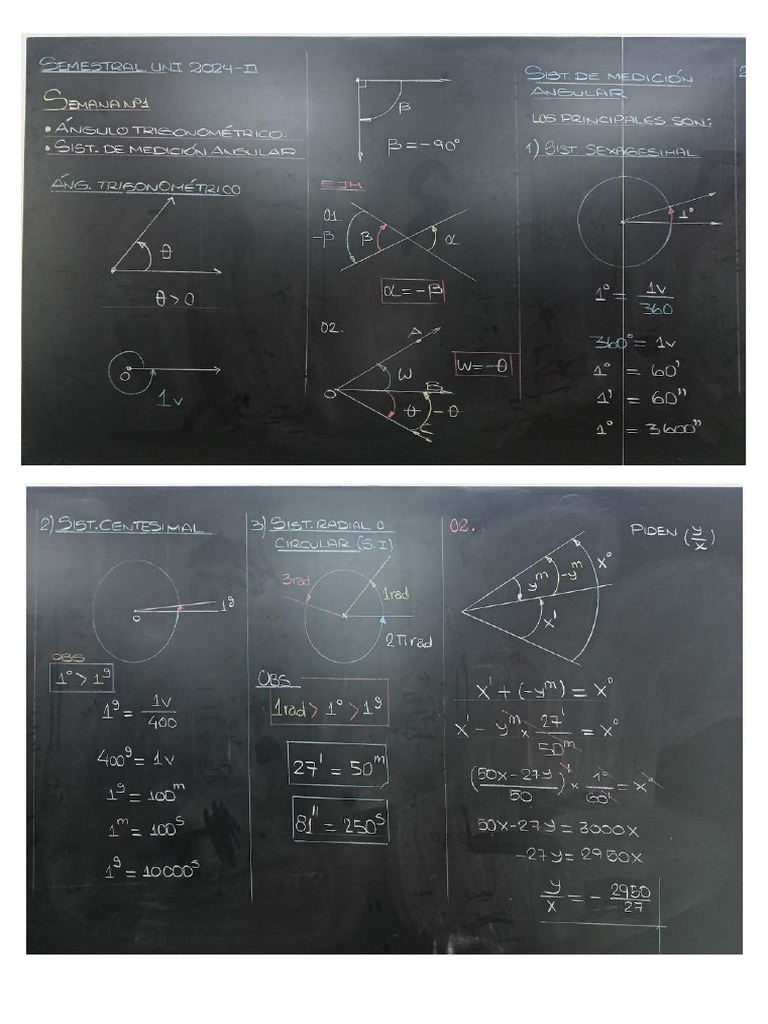 SEMESTRAL UNI 2024-II
SEMANA Nº1
• ÁNGULO TRIGONOMÉTRICO.
• SIST. DE MEDICIÓN ANGULAR
ÁNG. TRIGONOMÉTRICO
θ
θ > 0
O
1v
β
β = -90°
EJM
01.
-β β α
α = -β
02.
A
ω
O B
θ -θ
C
ω = -θ
SIST. DE MEDICIÓN
ANGULAR
LOS PRINCIPALES SON:
1) SIST. SEXAGESIMAL
1°
1° = 1v/360
360° = 1v
1° = 60'
1' = 60"
1° = 3600"
2
2) SIST. CENTESIMAL
O 1g
OBS
1° > 1g
1g = 1v/400
400g = 1v
1g = 100m
1m = 100s
1g = 10000s
3) SIST. RADIAL O
CIRCULAR (S.I)
3rad
1rad
2πrad
OBS
1rad > 1° > 1g
27' = 50m
81" = 250s
02.
PIDEN (y/x)
ym -ym x°
x'
x' + (-ym) = x°
x' - ym × 27'/50m = x°
((50x - 27y)/50)' × 1°/60' = x°
50x - 27y = 3000x
-27y = 2950x
y/x = - 2950/27